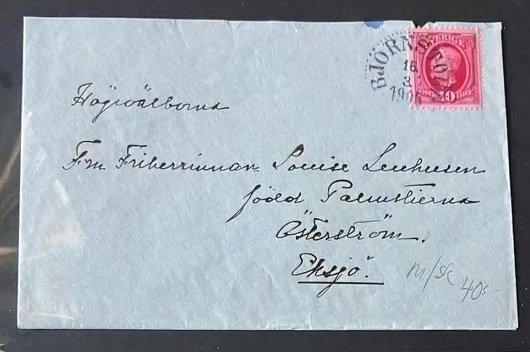 BJÖRNÖ
16
3
190
SVERIGE
10 ÖRE
Högvälborna
Fru Friherrinnan Louise Leuhusen
född Palmstierna
Österström.
Eksjö.
40:-